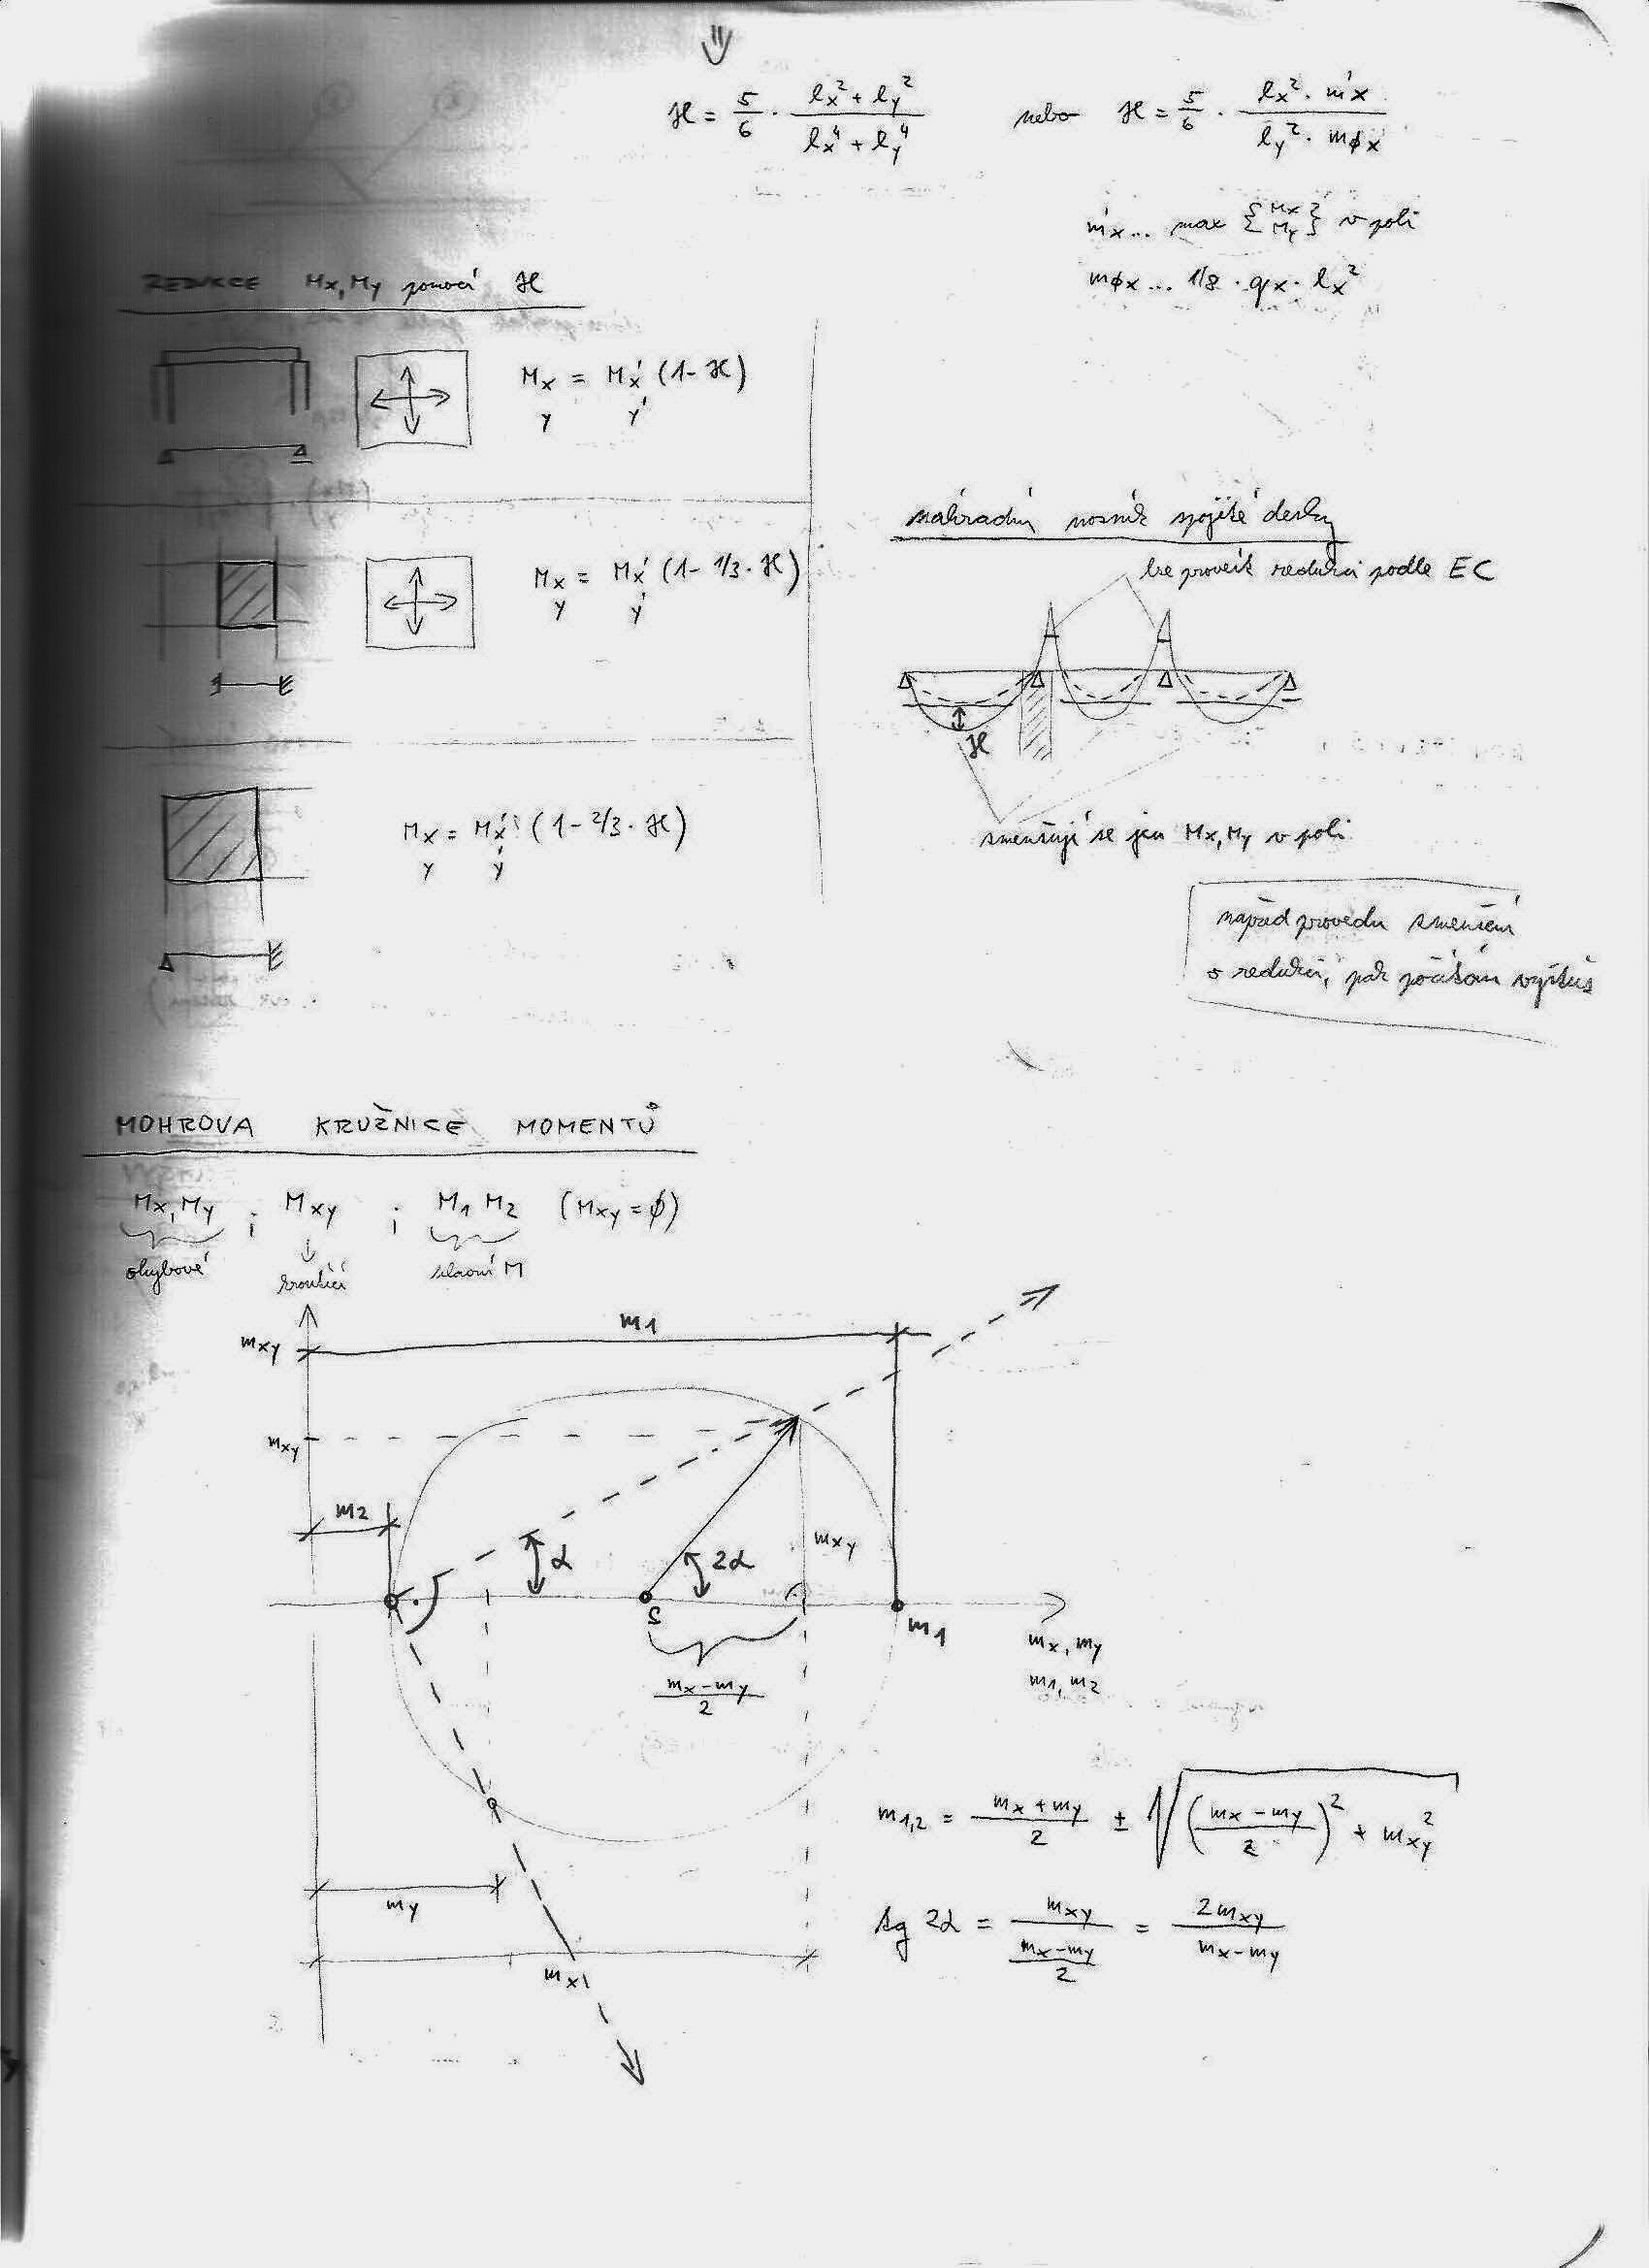 ⇓
ϰ = 5/6 · (lx² + ly²)/(lx⁴ + ly⁴) nebo ϰ = 5/6 · (lx² · m'x)/(ly² · mϕx)
m'x... max {Mx My} v poli
mϕx... 1/8 · qx · lx²
REDUKCE Mx, My pomocí ϰ
Mx = Mx' (1 - ϰ)
y y'
náhradní nosník spojité desky
lze provést redukci podle EC
Mx = Mx' (1 - 1/3 · ϰ)
y y'
ϰ
Mx = Mx' (1 - 2/3 · ϰ)
y y'
zmenšují se jen Mx, My v poli
napřed provedu zmenšení
a redukci, pak počítám výztuž
MOHROVA KRUŽNICE MOMENTŮ
Mx, My ; Mxy ; M1 M2 (Mxy = ϕ)
ohybové kroutící hlavní M
m1
mxy
mxy
m2
α
2α
mxy
S
m1
mx, my
m1, m2
(mx - my)/2
m1,2 = (mx + my)/2 ± √(((mx - my)/2)² + mxy²)
my
tg 2α = mxy/((mx - my)/2) = 2mxy/(mx - my)
mx